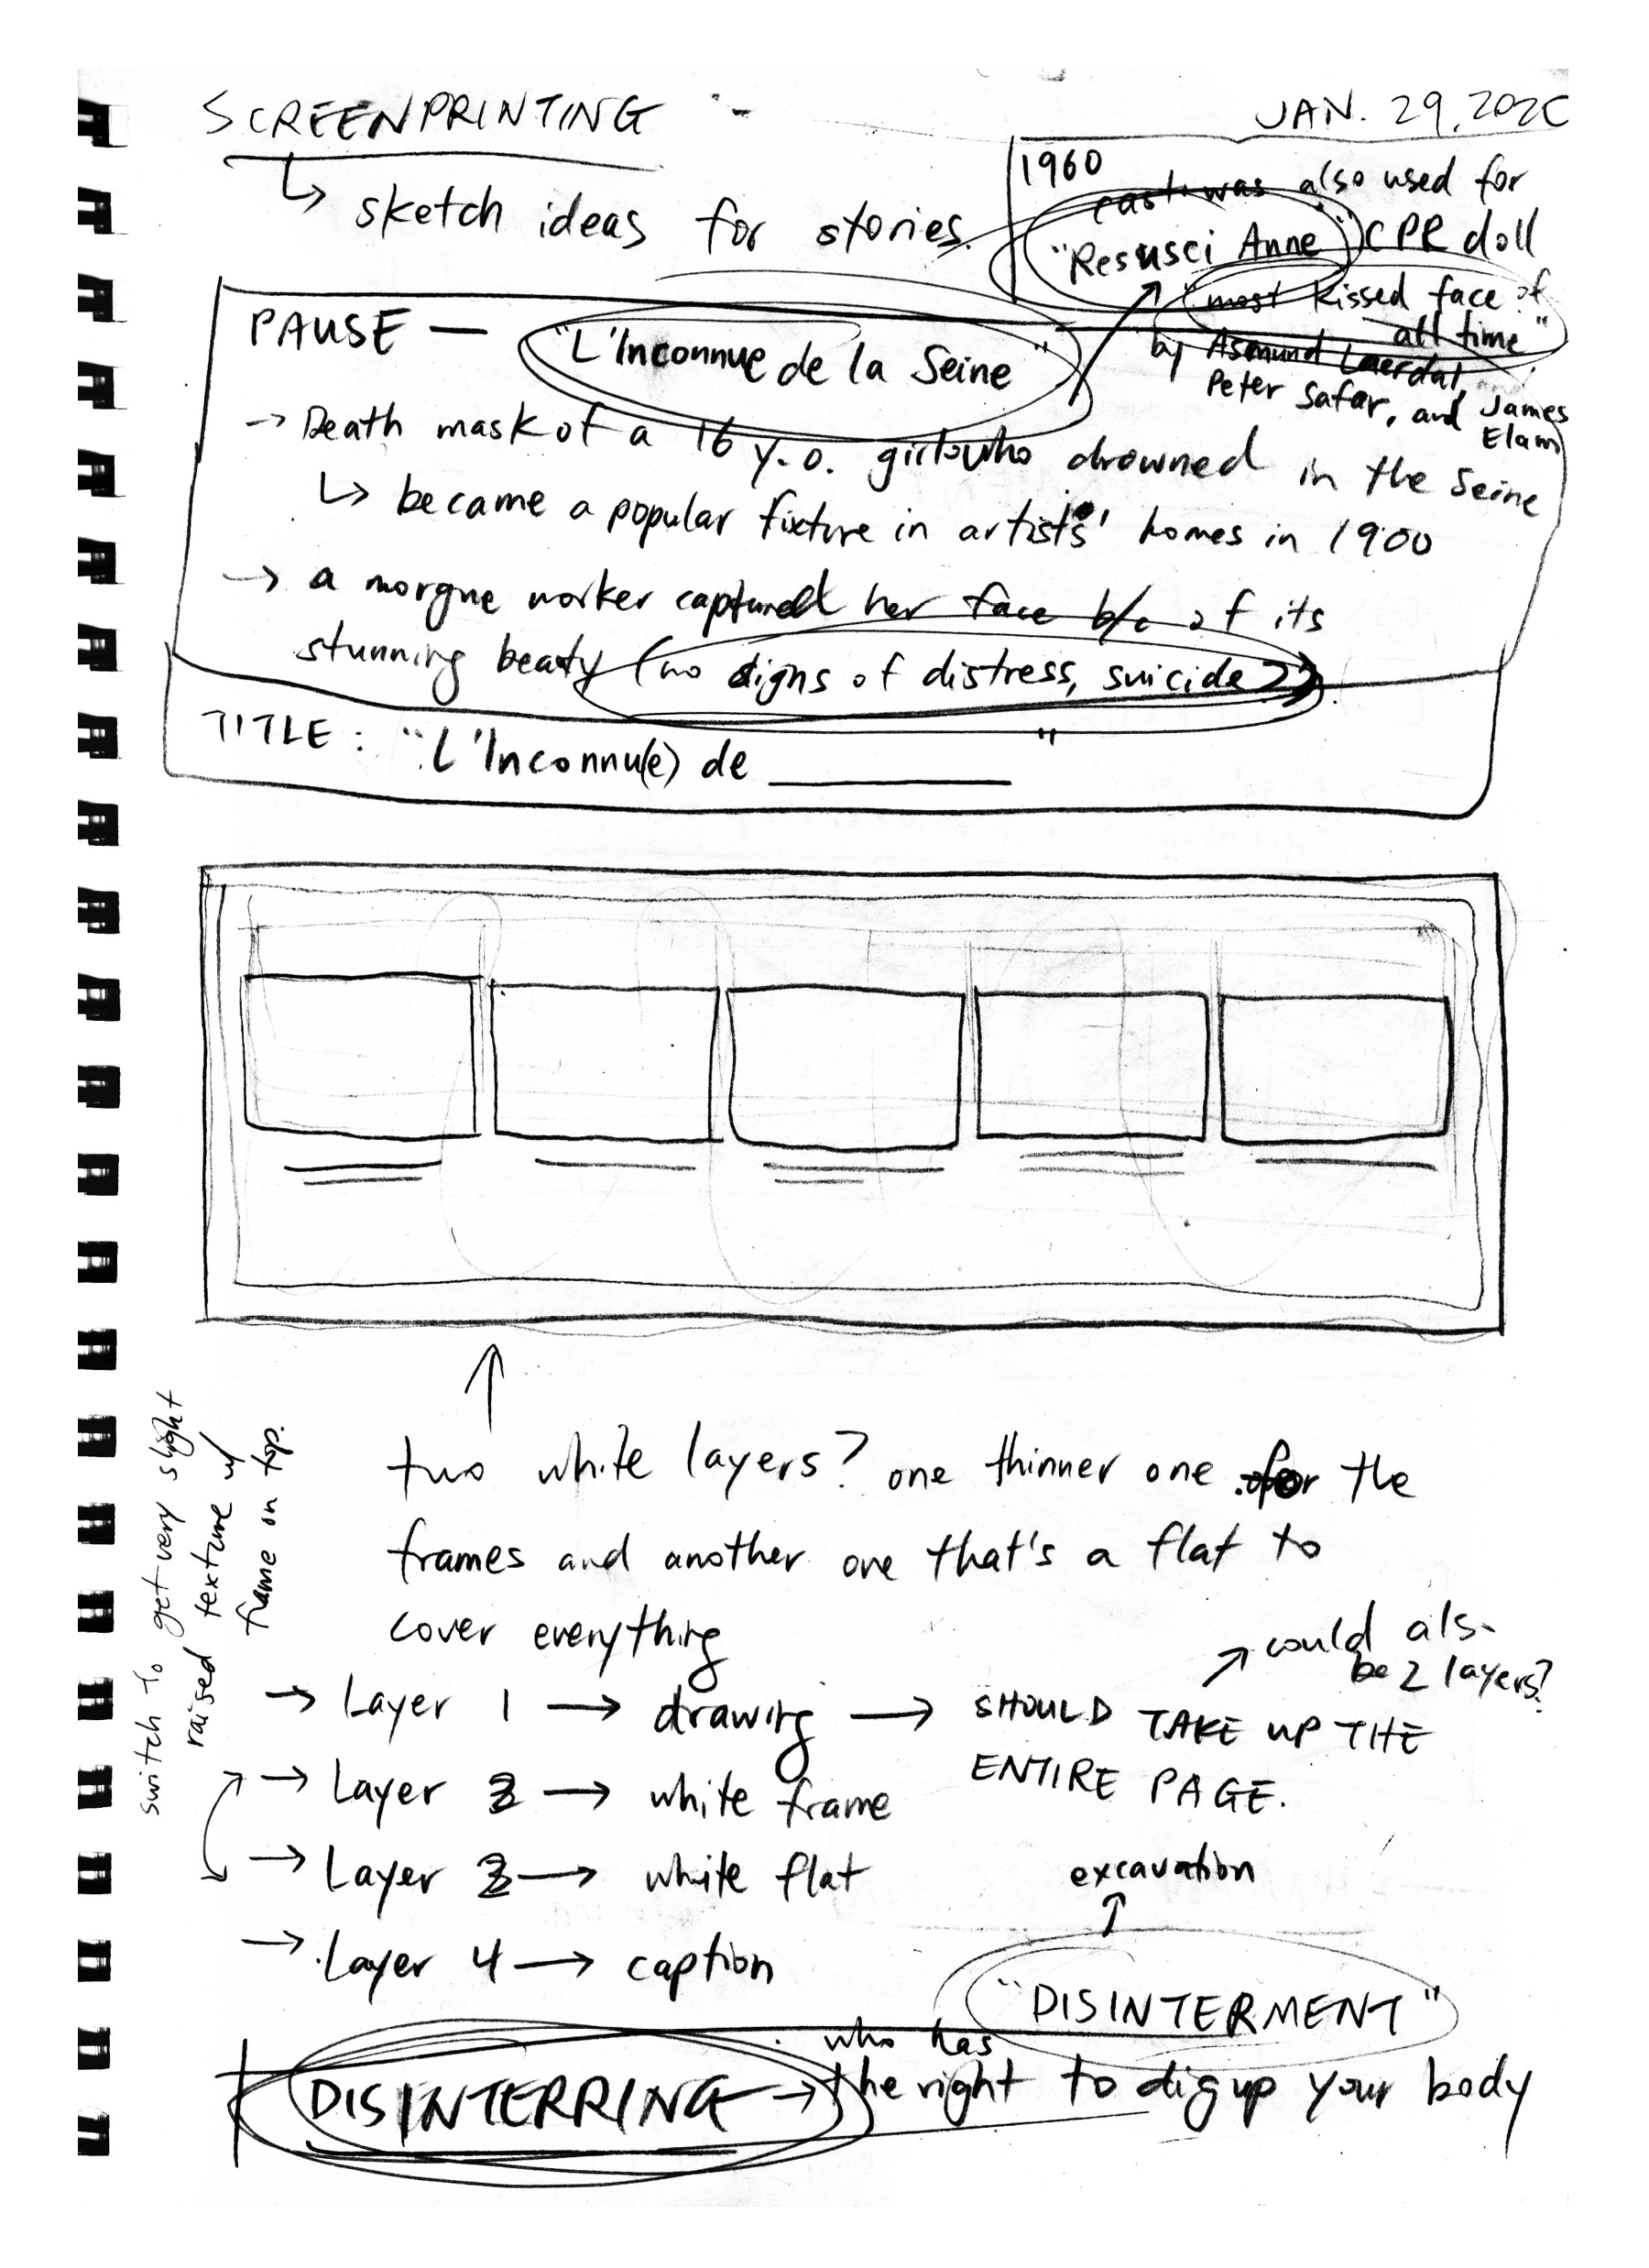 SCREENPRINTING
JAN. 29, 202
↳ sketch ideas for stories.
1960
cast was also used for
"Resusci Anne" CPR doll
"most kissed face of
all time"
by Asmund Laerdal,
Peter Safar, and James
Elam
PAUSE — "L'Inconnue de la Seine"
→ Death mask of a 16 y.o. girl who drowned in the Seine
↳ became a popular fixture in artists' homes in 1900
→ a morgue worker captured her face b/c of its
stunning beaty (no signs of distress, suicide?)
TITLE: "L'Inconnu(e) de ________"
two white layers? one thinner one for the
frames and another one that's a flat to
cover everything
→ Layer 1 → drawing → SHOULD TAKE UP THE
ENTIRE PAGE.
↗ could als
be 2 layers?
→ Layer → white frame
→ Layer → white flat
→ Layer 4 → caption
switch to get very slight
raised texture w/
frame on top.
excavation
↑
"DISINTERMENT"
who has
DISINTERRING → the right to dig up your body